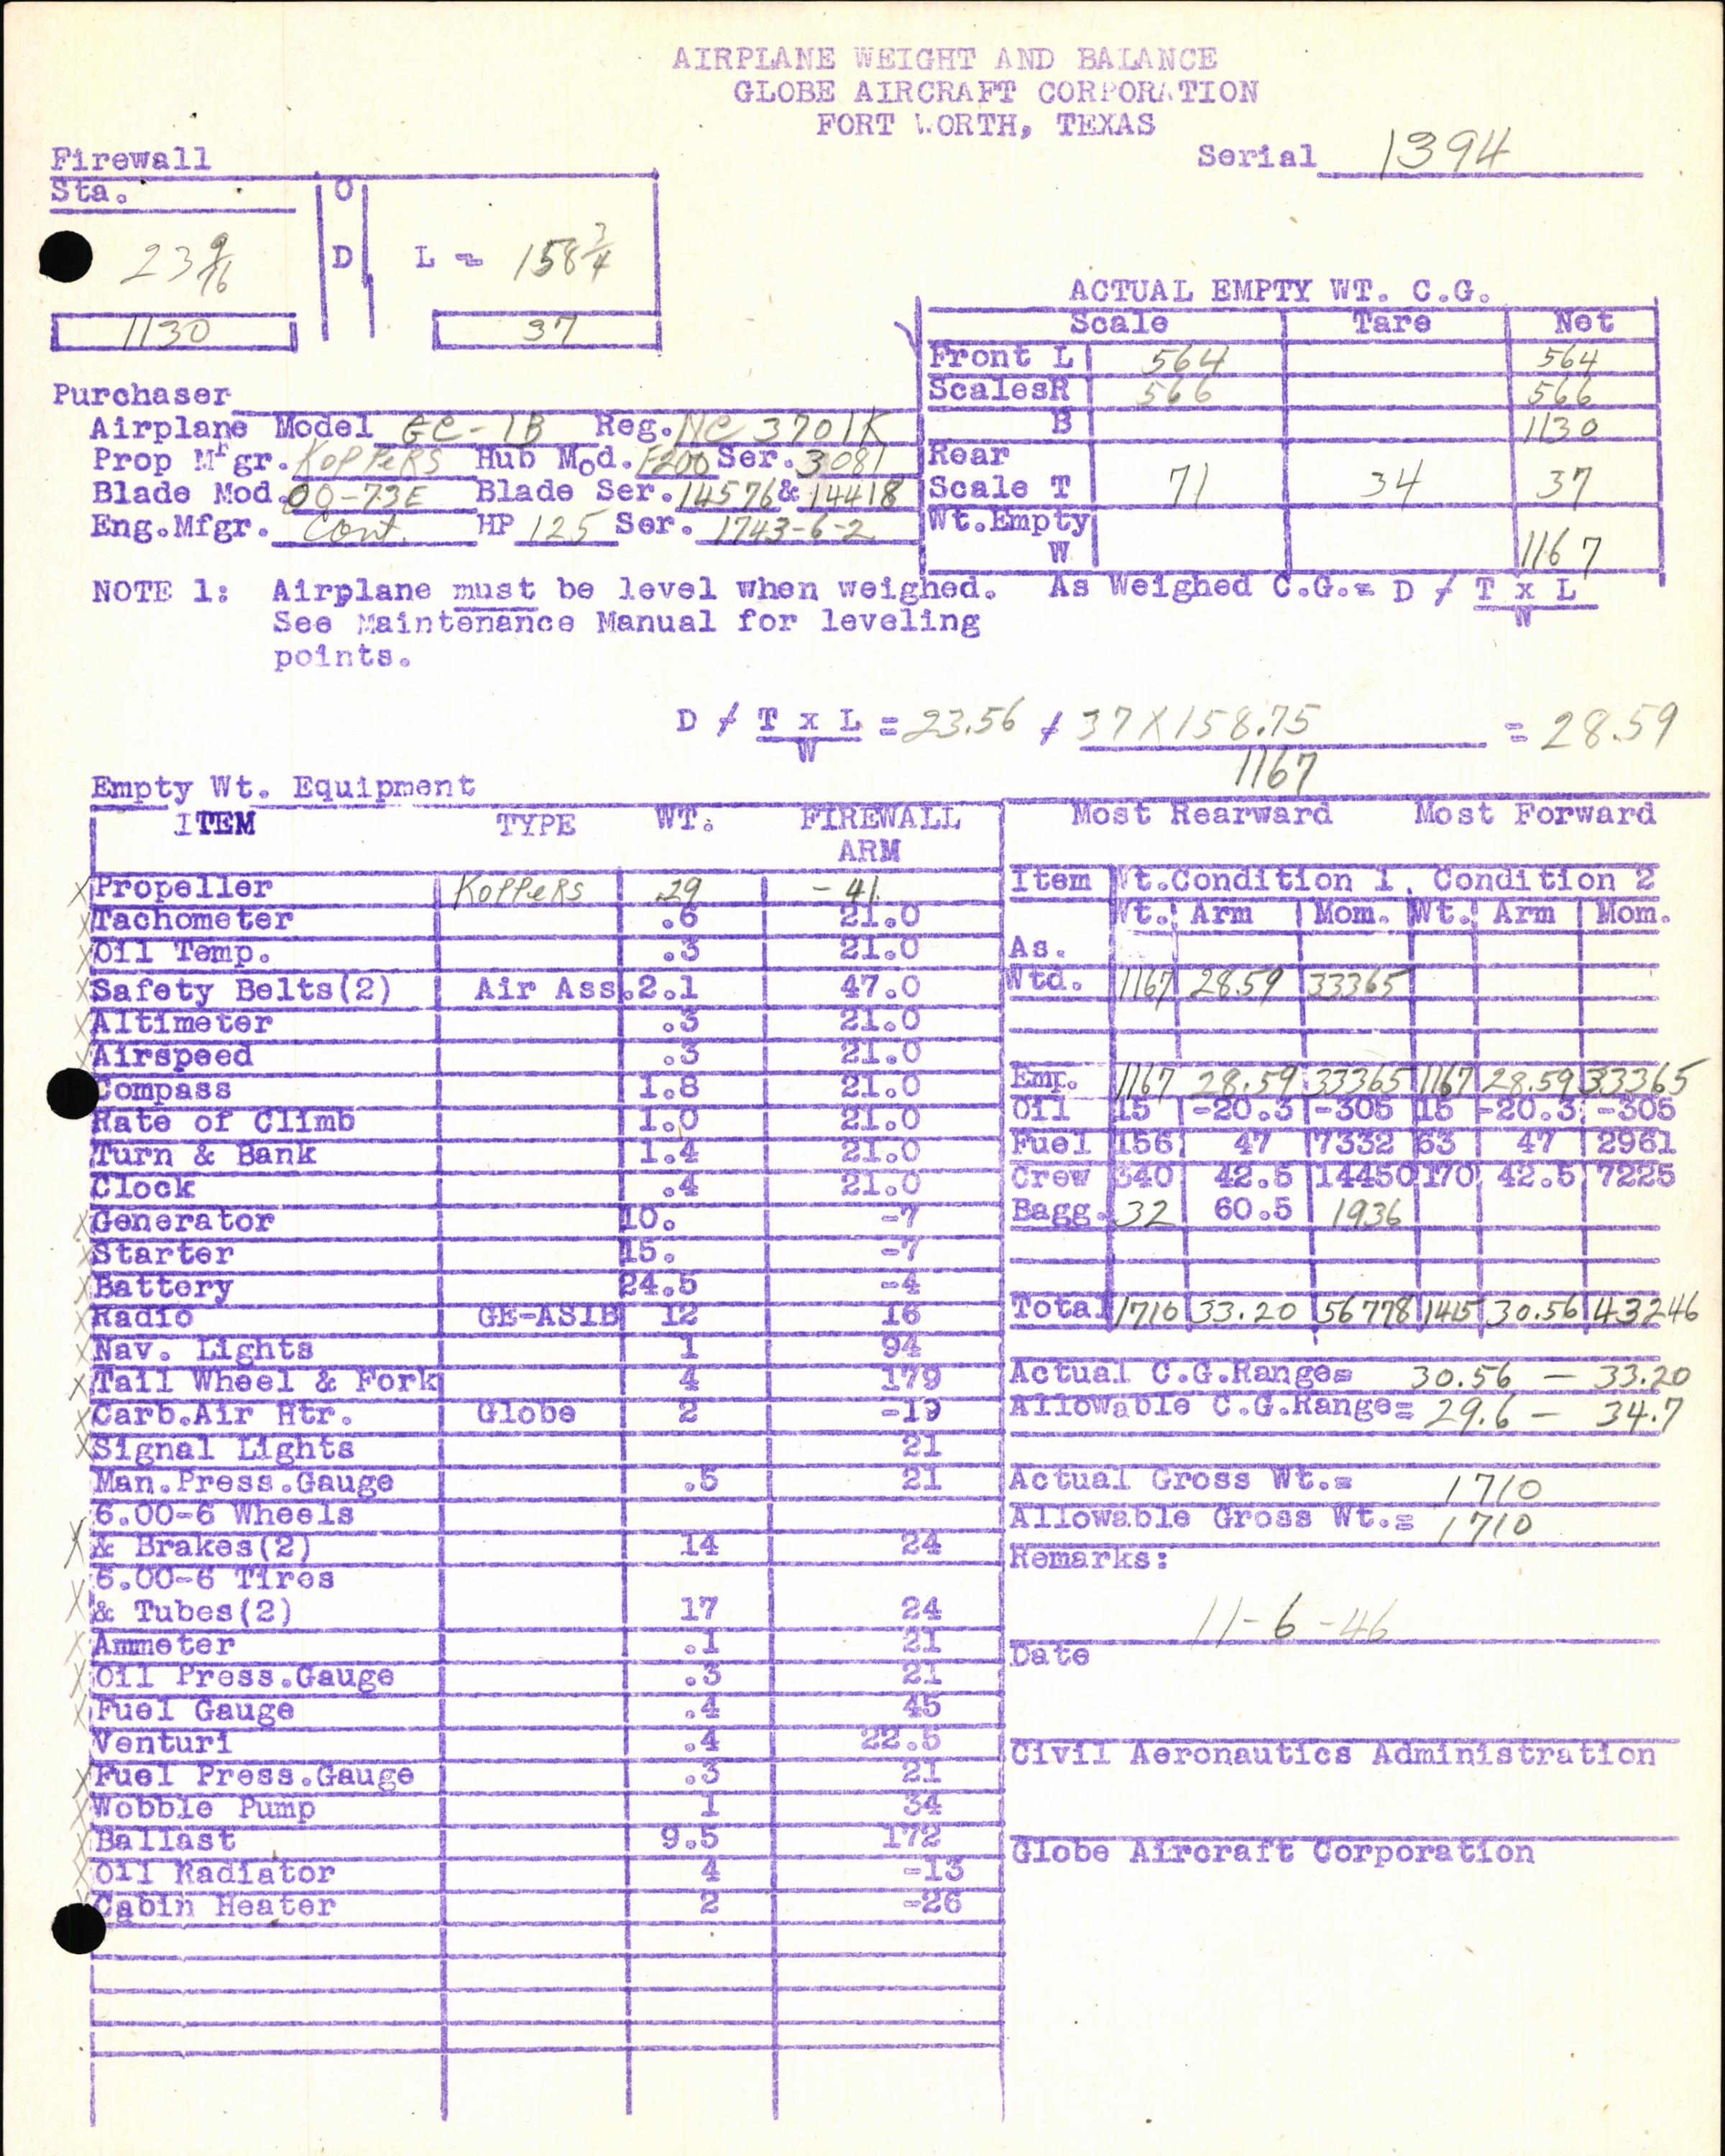 AIRPLANE WEIGHT AND BALANCE
GLOBE AIRCRAFT CORPORATION
FORT WORTH, TEXAS
Serial 1394
Firewall
Sta.
O
23 9/16
D
L = 158 3/4
1130
37
ACTUAL EMPTY WT. C.G.
Scale Tare Net
Front L 564 564
Scales R 566 566
B 1130
Rear
Scale T 71 34 37
Wt.Empty
W 1167
Purchaser
Airplane Model GC-1B Reg. NC 3701K
Prop Mfgr. KOPPERS Hub Mod. F200 Ser. 3081
Blade Mod. 00-73E Blade Ser. 14576 & 14418
Eng.Mfgr. Cont. HP 125 Ser. 1743-6-2
NOTE 1: Airplane must be level when weighed.
See Maintenance Manual for leveling
points.
As Weighed C.G.= D / T x L
W
D / T x L = 23.56 / 37 X 158.75 = 28.59
W 1167
Empty Wt. Equipment
ITEM TYPE WT. FIREWALL
ARM
X Propeller KOPPERS 29 -41.
X Tachometer .6 21.0
X Oil Temp. .3 21.0
X Safety Belts(2) Air Ass. 2.1 47.0
X Altimeter .3 21.0
X Airspeed .3 21.0
Compass 1.8 21.0
Rate of Climb 1.0 21.0
Turn & Bank 1.4 21.0
Clock .4 21.0
X Generator 10. -7
X Starter 15. -7
X Battery 24.5 -4
X Radio GE-AS1B 12 16
X Nav. Lights 1 94
X Tail Wheel & Fork 4 179
X Carb.Air Htr. Globe 2 -19
X Signal Lights 21
Man.Press.Gauge .5 21
6.00-6 Wheels
X & Brakes(2) 14 24
6.00-6 Tires
X & Tubes(2) 17 24
X Ammeter .1 21
X Oil Press.Gauge .3 21
X Fuel Gauge .4 45
Venturi .4 22.5
X Fuel Press.Gauge .3 21
X Wobble Pump 1 34
X Ballast 9.5 172
X Oil Radiator 4 -13
X Cabin Heater 2 -26
Most Rearward Most Forward
Item Wt.Condition 1. Condition 2
Wt. Arm Mom. Wt. Arm Mom.
As.
Wtd. 1167 28.59 33365
Emp. 1167 28.59 33365 1167 28.59 33365
Oil 15 -20.3 -305 15 -20.3 -305
Fuel 156 47 7332 63 47 2961
Crew 340 42.5 14450 170 42.5 7225
Bagg. 32 60.5 1936
Total 1710 33.20 56778 1415 30.56 43246
Actual C.G.Range= 30.56 — 33.20
Allowable C.G.Range= 29.6 — 34.7
Actual Gross Wt.= 1710
Allowable Gross Wt.= 1710
Remarks:
11-6-46
Date
Civil Aeronautics Administration
Globe Aircraft Corporation